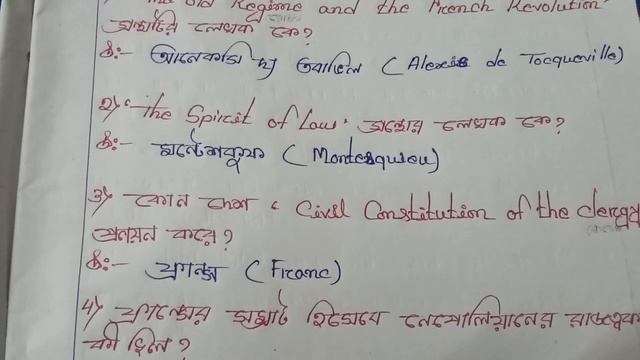 The Old Regime and the French Revolution'
গ্রন্থটির লেখক কে?
উঃ- আলেকসি দ্য তকভিল (Alexis de Tocqueville)
২) 'The Spirit of Law' গ্রন্থের লেখক কে?
উঃ- মন্টেস্কু (Montesquieu)
৩) কোন দেশ 'Civil Constitution of the clergy
প্রনয়ন করে?
উঃ- ফ্রান্স (Franc)
৪) ফ্রান্সের সম্রাট হিসেবে নেপোলিয়ানের
কী ছিল?